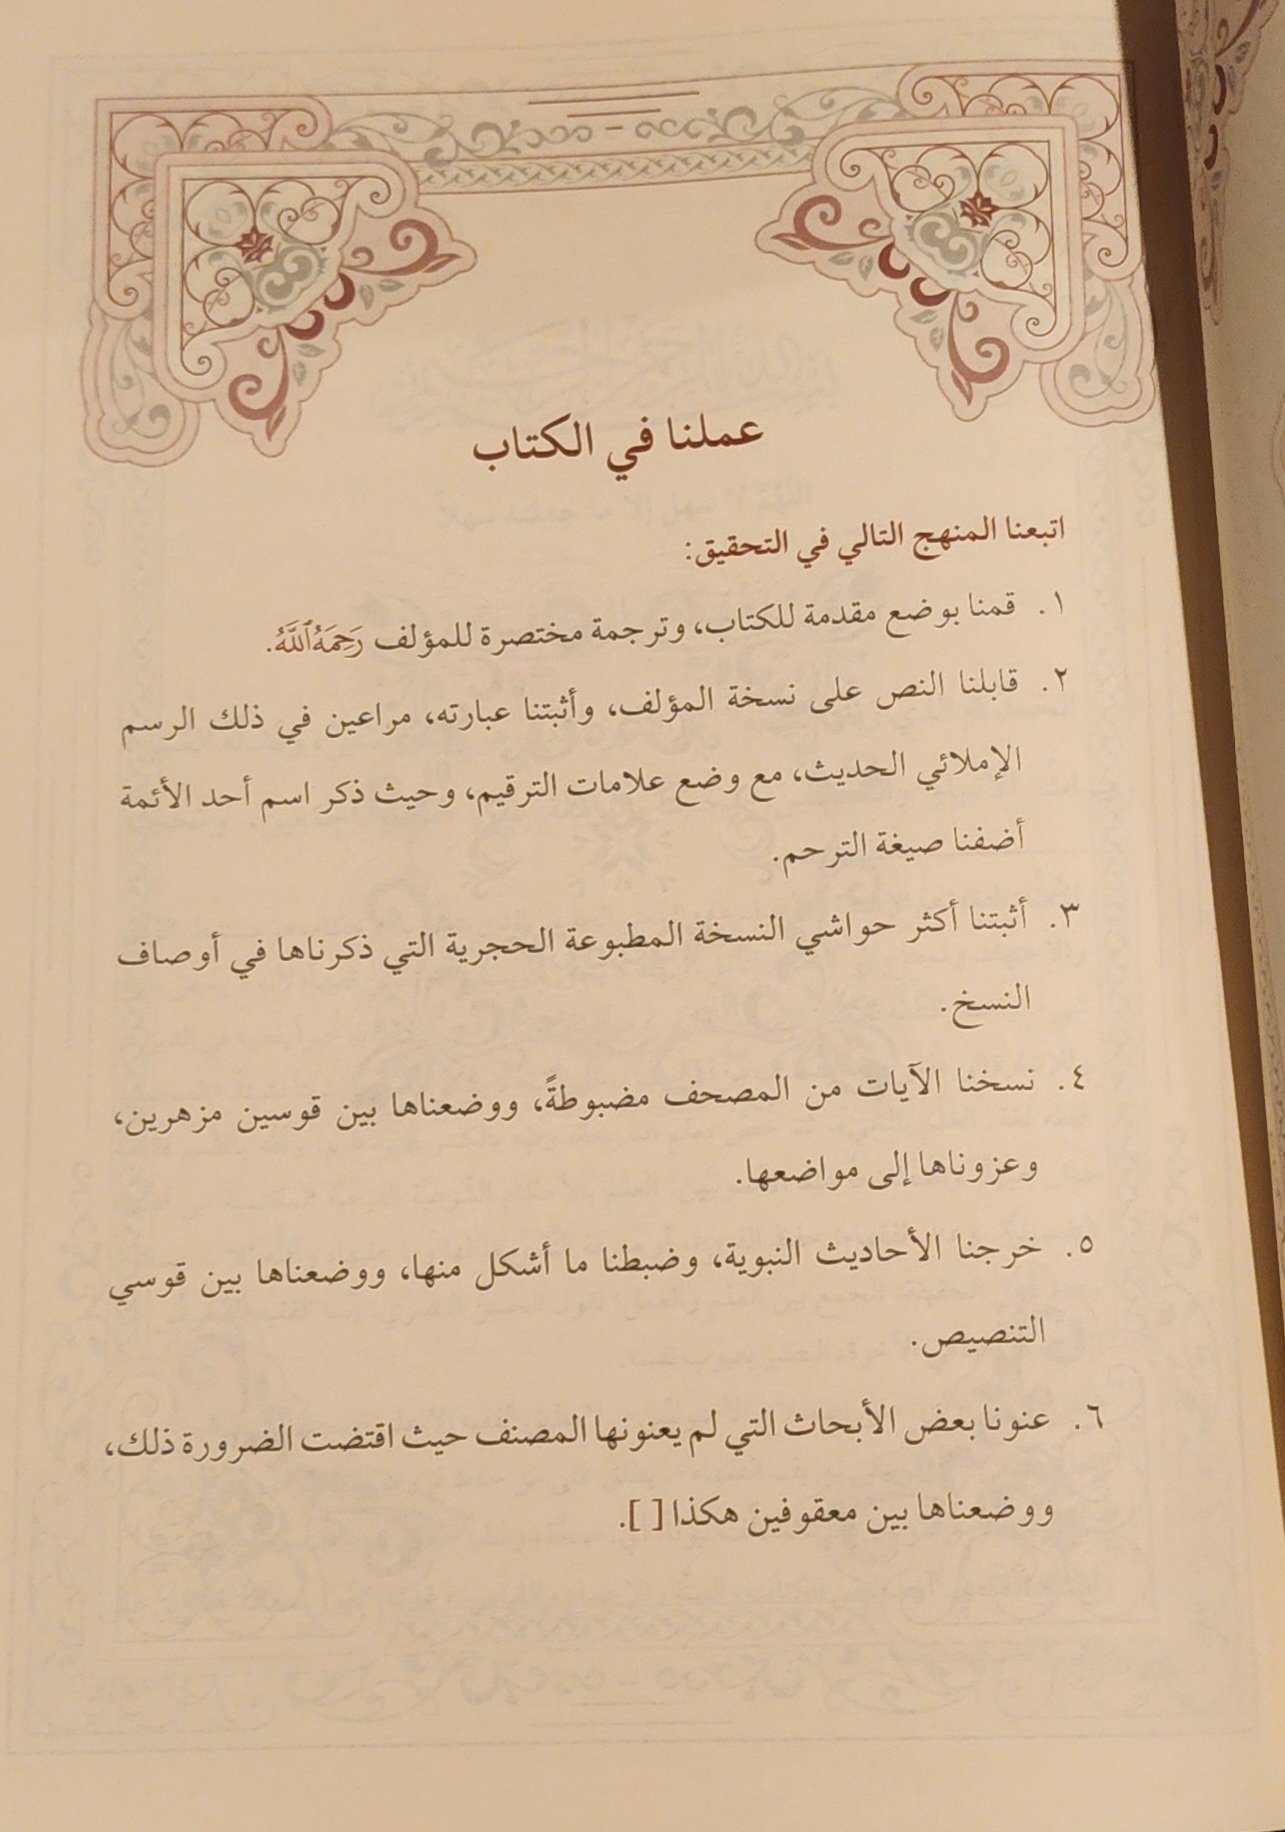 عملنا في الكتاب
اتبعنا المنهج التالي في التحقيق:
١. قمنا بوضع مقدمة للكتاب، وترجمة مختصرة للمؤلف رَحِمَهُ ٱللَّهُ.
٢. قابلنا النص على نسخة المؤلف، وأثبتنا عبارته، مراعين في ذلك الرسم
الإملائي الحديث، مع وضع علامات الترقيم، وحيث ذكر اسم أحد الأئمة
أضفنا صيغة الترحم.
٣. أثبتنا أكثر حواشي النسخة المطبوعة الحجرية التي ذكرناها في أوصاف
النسخ.
٤. نسخنا الآيات من المصحف مضبوطةً، ووضعناها بين قوسين مزهرين،
وعزوناها إلى مواضعها.
٥. خرجنا الأحاديث النبوية، وضبطنا ما أشكل منها، ووضعناها بين قوسي
التنصيص.
٦. عنونا بعض الأبحاث التي لم يعنونها المصنف حيث اقتضت الضرورة ذلك،
ووضعناها بين معقوفين هكذا [ ].